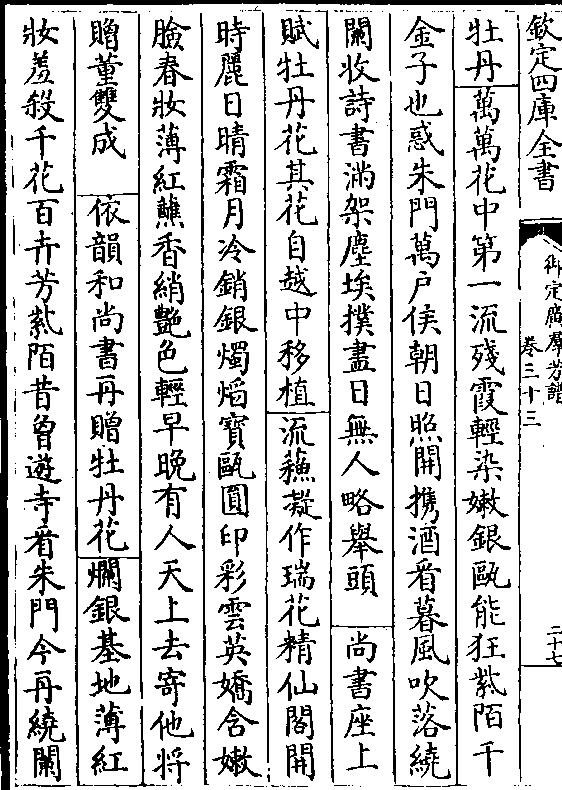 欽定四庫全書
御定廣羣芳譜
卷三十三
二十七
牡丹萬萬花中第一流殘霞輕染嫩銀甌能狂紫陌千
金子也惑朱門萬户侯朝日照開携酒看暮風吹落繞
闌收詩書滿架塵埃撲盡日無人略舉頭 尚書座上
賦牡丹花其花自越中移植流蘇凝作瑞花精仙閣開
時麗日晴霜月冷銷銀燭熖寶甌圓印彩雲英嬌含嫩
臉春妝薄紅蘸香綃艷色輕早晚有人天上去寄他將
贈董雙成 依韻和尚書再贈牡丹花爛銀基地薄紅
妝羞殺千花百卉芳紫陌昔曾遊寺看朱門今再繞闌